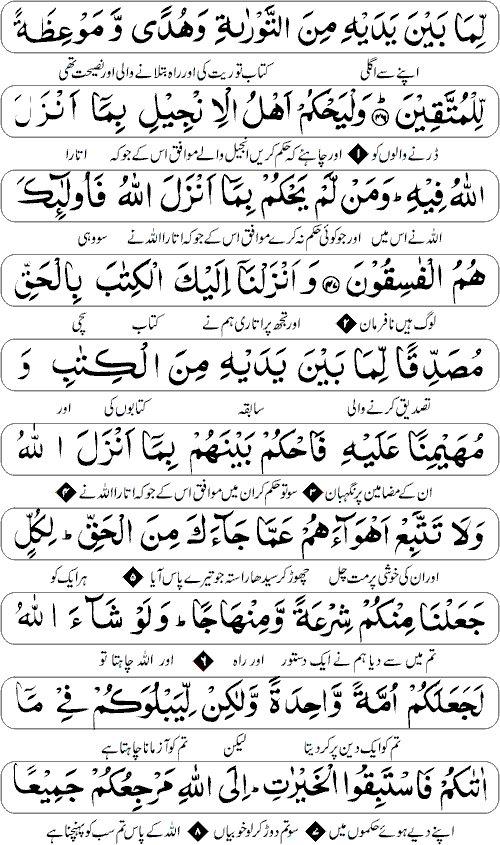 لِّمَا بَيْنَ يَدَيْهِ مِنَ التَّوْرٰىةِ وَهُدًى وَّمَوْعِظَةً
اپنے سے اگلی کتاب توریت کی اور راہ بتلانے والی اور نصیحت تھی
لِّلْمُتَّقِيْنَ ۝۴۶ وَلْيَحْكُمْ اَهْلُ الْاِنْجِيْلِ بِمَآ اَنْزَلَ
ڈرنے والوں کو ۱ اور چاہئے کہ حکم کریں انجیل والے موافق اس کے جو کہ اتارا
اللّٰهُ فِيْهِ ؕ وَمَنْ لَّمْ يَحْكُمْ بِمَآ اَنْزَلَ اللّٰهُ فَاُولٰٓئِكَ
اللہ نے اس میں اور جو کوئی حکم نہ کرے موافق اس کے جو کہ اتارا اللہ نے سو وہی
هُمُ الْفٰسِقُوْنَ ۝۴۷ وَاَنْزَلْنَآ اِلَيْكَ الْكِتٰبَ بِالْحَقِّ
لوگ ہیں نافرمان ۲ اور تجھ پر اتاری ہم نے کتاب سچی
مُصَدِّقًا لِّمَا بَيْنَ يَدَيْهِ مِنَ الْكِتٰبِ وَ
تصدیق کرنے والی سابقہ کتابوں کی اور
مُهَيْمِنًا عَلَيْهِ فَاحْكُمْ بَيْنَهُمْ بِمَآ اَنْزَلَ اللّٰهُ
ان کے مضامین پر نگہبان ۳ سو تو حکم کر ان میں موافق اس کے جو کہ اتارا اللہ نے ۴
وَلَا تَتَّبِعْ اَهْوَآءَهُمْ عَمَّا جَآءَكَ مِنَ الْحَقِّ ؕ لِكُلٍّ
اور ان کی خوشی پر مت چل چھوڑ کر سیدھا راستہ جو تیرے پاس آیا ۵ ہر ایک کو
جَعَلْنَا مِنْكُمْ شِرْعَةً وَّمِنْهَاجًا ؕ وَلَوْ شَآءَ اللّٰهُ
تم میں سے دیا ہم نے ایک دستور اور راہ ۶ اور اللہ چاہتا تو
لَجَعَلَكُمْ اُمَّةً وَّاحِدَةً وَّلٰكِنْ لِّيَبْلُوَكُمْ فِيْ مَآ
تم کو ایک دین پر کر دیتا لیکن تم کو آزمانا چاہتا ہے
اٰتٰىكُمْ فَاسْتَبِقُوا الْخَيْرٰتِ ؕ اِلَى اللّٰهِ مَرْجِعُكُمْ جَمِيْعًا
اپنے دیے ہوئے حکموں میں ۷ سو تم دوڑ کر لو خوبیاں ۸ اللہ کے پاس تم سب کو پہنچنا ہے